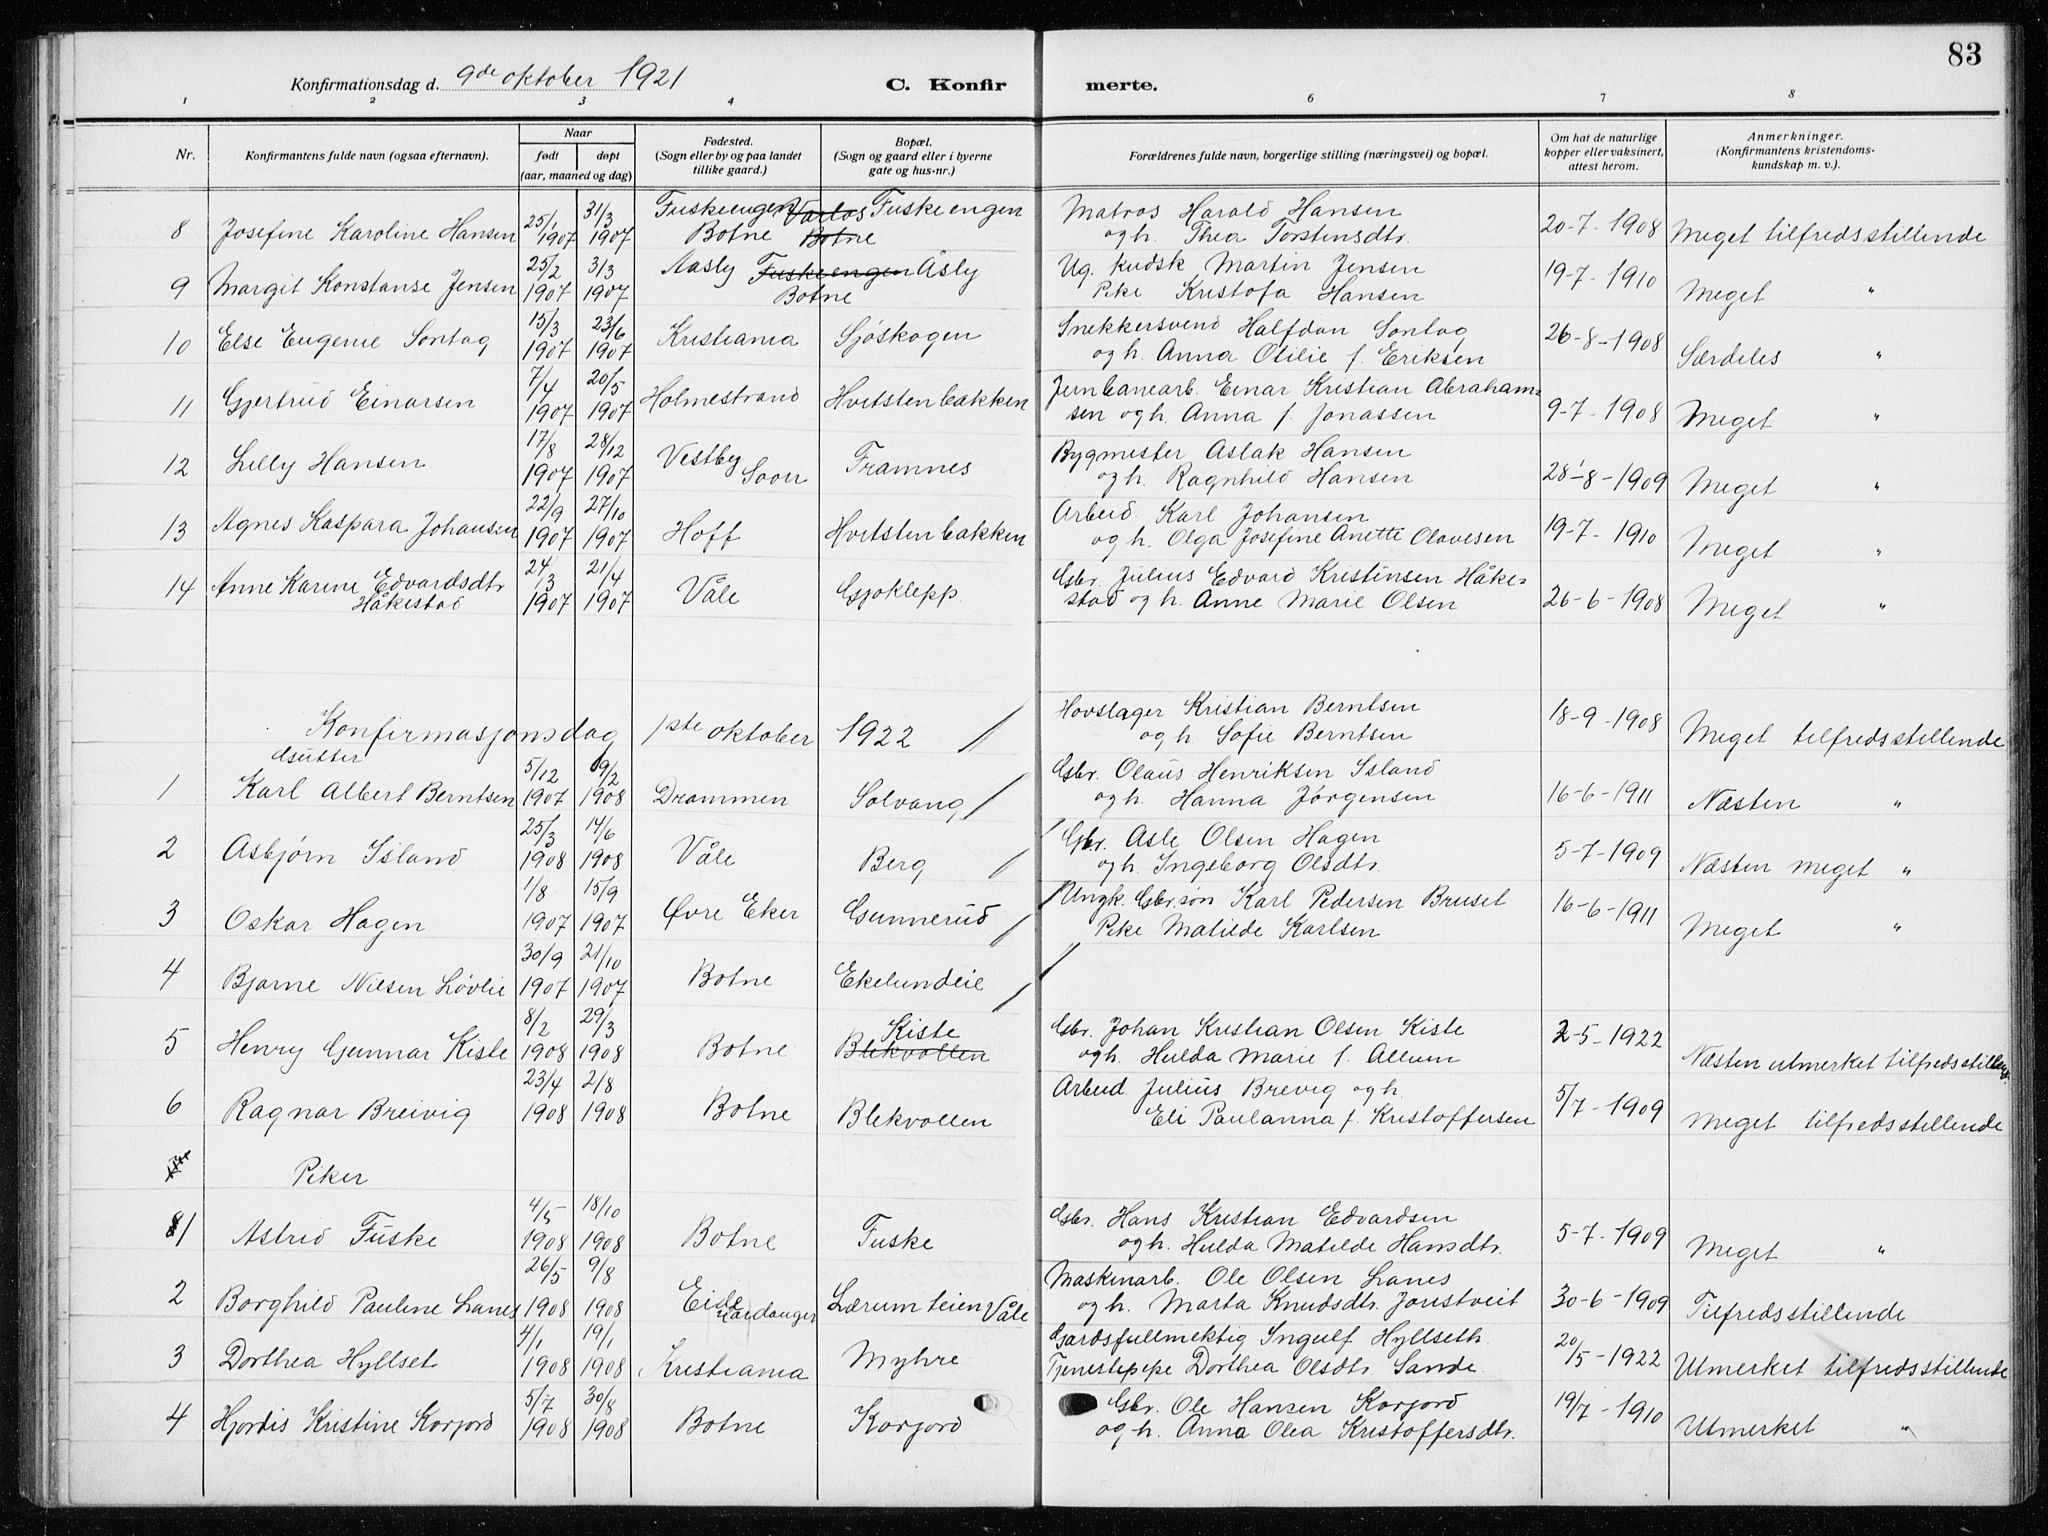 83
Konfirmationsdag d. 9de oktober 1921 C. Konfirmerte.
1 2 3 4 5 6 7 8
Nr.
Konfirmantens fulde navn (ogsaa efternavn).
Naar
født døpt
(aar, maaned og dag)
Fødested.
(Sogn eller by og paa landet
tillike gaard.)
Bopæl.
(Sogn og gaard eller i byerne
gate og hus-nr.)
Forældrenes fulde navn, borgerlige stilling (næringsvei) og bopæl.
Om hat de naturlige
kopper eller vaksinert,
attest herom.
Anmerkninger.
(Konfirmantens kristendoms-
kundskap m. v.).
25/1 31/3 Fuskeengen Varlos Fuskeengen Matros Harald Hansen
8 Josefine Karoline Hansen 1907 1907 Botne Botne og h. Thea Torstensdtr. 20-7-1908 Meget tilfredsstillende
25/2 3/3 Aasly Fuskeengen Åsly Ug. kudsk Martin Jensen
9 Margit Konstanse Jensen 1907 1907 Botne Pike Kristofa Hansen 19-7-1910 Meget "
15/3 23/6 Snekkersvend Halfdan Sontag
10 Else Eugenie Sontag 1907 1907 Kristiania Sjøskogen og h. Anna Otilie f. Eriksen 26-8-1908 Særdeles "
7/4 20/5 Jernbanearb. Einar Kristian Abraham=
11 Gjertrud Einarsen 1907 1907 Holmestrand Hvitstenbakken sen og h. Anna f. Jonassen 9-7-1908 Meget "
17/8 28/12 Vestby Bygmester Aslak Hansen
12 Lilly Hansen 1907 1907 Soon Framnes og h. Ragnhild Hansen 28-8-1909 Meget "
22/9 27/10 Arbeid. Karl Johansen
13 Agnes Kaspara Johansen 1907 1907 Hoff Hvitstenbakken og h. Olga Josefine Anette Olavesen 19-7-1910 Meget "
24/3 21/4 Gbr. Julius Edvard Kristinsen Håke=
14 Anne Karine Edvardsdtr. 1907 1907 Våle Gjøklepp. stad og h. Anne Marie Olsen 26-6-1908 Meget "
Håkestad
Konfirmasjonsdag 1ste oktober 1922
Gutter
Hovslager Kristian Berntsen
og h Sofie Berntsen 18-9-1908 Meget tilfredsstillende
5/12 9/2 Gbr. Olaus Henriksen Island
1 Karl Albert Berntsen 1907 1908 Drammen Solvang og h. Hanna Jørgensen 16-6-1911 Næsten "
25/3 14/6 Gbr. Asle Olsen Hagen
2 Asbjørn Island 1908 1908 Våle Berg og h. Ingeborg Olsdtr. 5-7-1909 Næsten meget "
1/8 15/9 Ungk. Gbr.søn Karl Pedersen Bruset
3 Oskar Hagen 1907 1907 Øvre Eker Gunnerud Pike Matilde Karlsen 16-6-1911 Meget "
30/9 21/10
4 Bjarne Nilsen Løvlie 1907 1907 Botne Ekelundeie
8/2 29/3 Kiste Gbr. Johan Kristian Olsen Kiste
5 Henry Gunnar Kiste 1908 1908 Botne Blekvollen og h. Hulda Marie f. Allum 2-5-1922 Næsten utmerket tilfredsstill.
23/4 2/8 Arbeid Julius Brevig og h.
6 Ragnar Breivig 1908 1908 Botne Blekvollen Eli Paulanna f. Kristoffersen 5/7-1909 Meget tilfredsstillende
Piker
4/5 18/10 Gbr. Hans Kristian Edvardsen
1 Astrid Fuske 1908 1908 Botne Fuske og h. Hulda Matilde Hansdtr. 5-7-1909 Meget "
26/5 9/8 Eide Maskinarb. Ole Olsen Lanes
2 Borghild Pauline Lanes 1908 1908 Hardanger Lærumteien Våle og h. Marta Knudsdtr. Jonstveit 30-6-1909 Tilfredsstillende
4/1 19/1 Gardsfullmektig Ingulf Hyllseth
3 Dorthea Hyllset 1908 1908 Kristiania Myhre Tjenestepepe Dorthea Olsdtr Sande. 20/5-1922 Utmerket tilfredsstillende
5/7 30/8 Gbr. Ole Hansen Korjord
4 Hjordis Kristine Korjord 1908 1908 Botne Korjord og h. Anna Olea Kristoffersdtr. 19/7-1910 Utmerket "